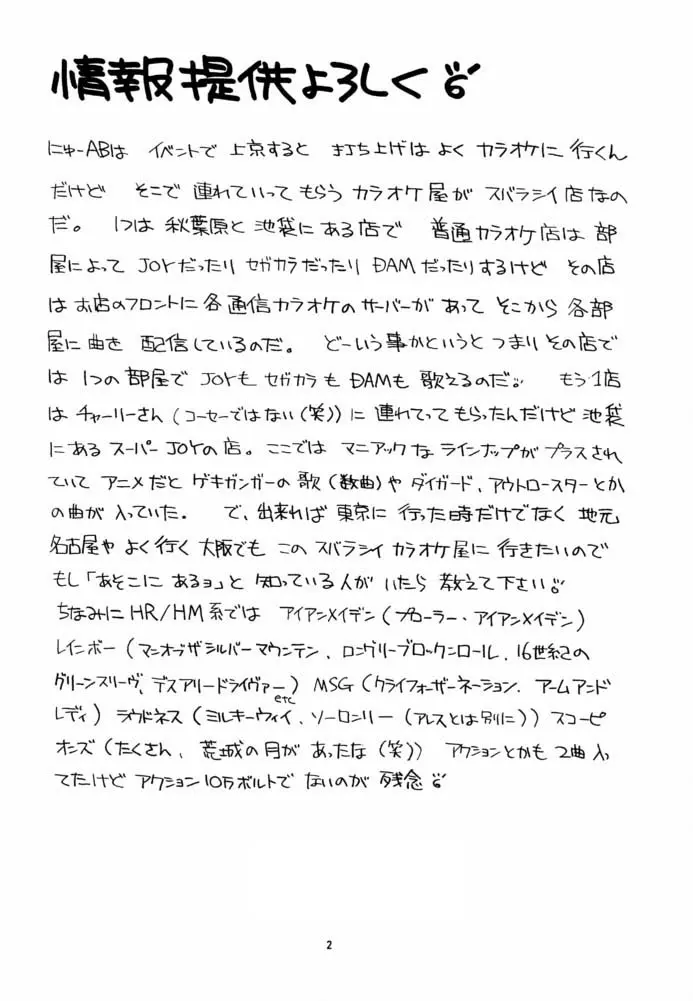 情報提供よろしく
にゅーABは イベントで 上京すると 打ち上げは よく カラオケに 行くん
だけど そこで 連れていって もらう カラオケ屋が スバラシイ店なの
だ。 1つは 秋葉原と 池袋にある店で 普通カラオケ店は 部
屋によって JOYだったり セガカラだったり DAMだったりするけど その店
はお店のフロントに各通信カラオケのサーバーがあって そこから 各部
屋に曲を 配信しているのだ。 どーいう事かというと つまり その店で
は 1つの 部屋で JOYも セガカラも DAMも 歌えるのだ。 もう1店
は チャーリーさん(コーセーではない(笑))に 連れてってもらったんだけど 池袋
にある スーパーJOYの店。ここでは マニアックな ラインナップが プラスされ
ていて アニメだと ゲキガンガーの 歌(数曲)や ダイガード、アウトロースターとか
の曲が 入っていた。 で、出来れば 東京に 行った時だけでなく 地元
名古屋や よく行く 大阪でも この スバラシイ カラオケ屋に 行きたいので
もし「あそこに あるョ」と 知っている人が いたら 教えて下さい
ちなみに HR/HM系では アイアンメイデン(プローラー、アイアンメイデン)
レインボー(マンオブザシルバーマウンテン、ロングリーブロックンロール、16世紀の
グリーンスリーヴ、デスアリードライヴァーetc) MSG(クライフォーザーネーション、アームアンド
レディ) ラウドネス(ミルキーウェイ、ソーロンリー(アレスとは別に)) スコーピ
オンズ(たくさん、荒城の月が あったな(笑)) アクションとかも 2曲入っ
てたけど アクション10万ボルトで ないのが 残念
2